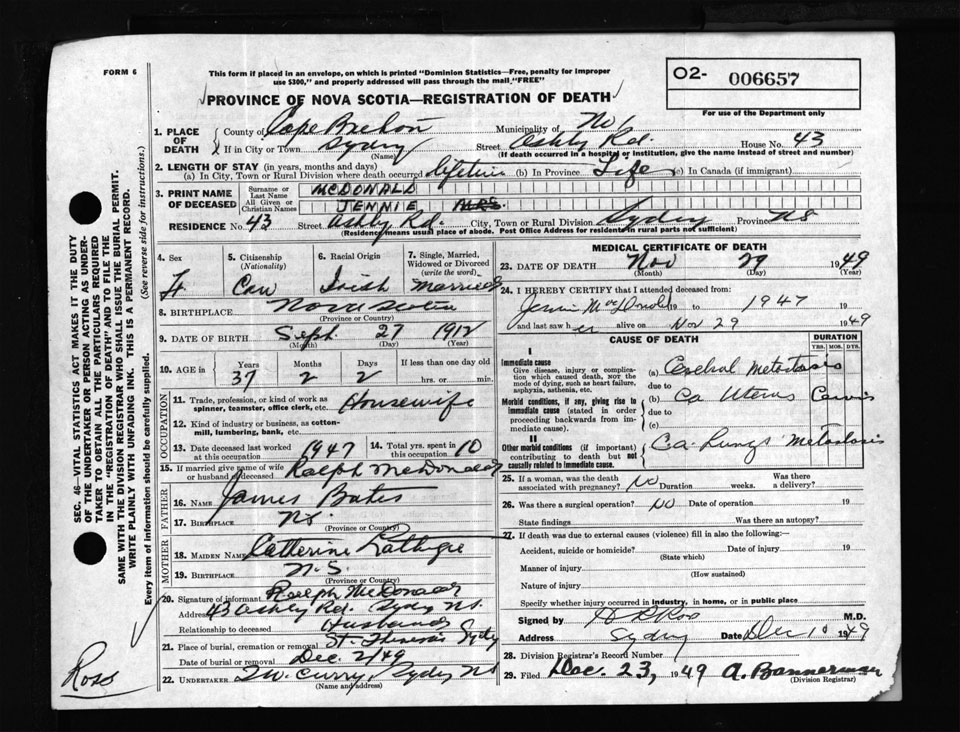 FORM 6
This form if placed in an envelope, on which is printed "Dominion Statistics—Free, penalty for improper
use $300," and properly addressed will pass through the mail "FREE"
O2- 006657
PROVINCE OF NOVA SCOTIA—REGISTRATION OF DEATH
For use of the Department only
1. PLACE OF DEATH
County of Cape Breton Municipality of No 1
If in City or Town Sydney Street Ashby Rd. House No. 43
(Name) (If death occurred in a hospital or institution, give the name instead of street and number)
2. LENGTH OF STAY (in years, months and days)
(a) In City, Town or Rural Division where death occurred lifetime (b) In Province Life (c) In Canada (if immigrant)
3. PRINT NAME OF DECEASED
Surname or Last Name MCDONALD
All Given or Christian Names JENNIE MRS.
RESIDENCE No. 43 Street Ashby Rd. City, Town or Rural Division Sydney Province NS
(Residence means usual place of abode. Post Office Address for residents in rural parts not sufficient)
4. Sex
F
5. Citizenship (Nationality)
Can
6. Racial Origin
Irish
7. Single, Married, Widowed or Divorced (write the word)
Married
8. BIRTHPLACE Nova Scotia
(Province or Country)
9. DATE OF BIRTH Sept. 27 1912
(Month) (Day) (Year)
10. AGE in Years Months Days If less than one day old
37 2 2 hrs. or min.
OCCUPATION
11. Trade, profession, or kind of work as
spinner, teamster, office clerk, etc. Housewife
12. Kind of industry or business, as cotton-
mill, lumbering, bank, etc.
13. Date deceased last worked at this occupation 1947 14. Total yrs. spent in this occupation 10
15. If married give name of wife or husband of deceased Ralph McDonald
FATHER
16. Name James Bates
17. Birthplace NS.
(Province or Country)
MOTHER
18. MAIDEN NAME Catherine
19. BIRTHPLACE N.S.
(Province or Country)
20. Signature of informant Ralph McDonald
Address 43 Ashby Rd. Sydney NS.
Relationship to deceased Husband
21. Place of burial, cremation or removal St. Theresa's Sydney
Date of burial or removal Dec. 2/49
22. UNDERTAKER T.W. Curry, Sydney NS
(Name and address)
MEDICAL CERTIFICATE OF DEATH
23. DATE OF DEATH Nov 29 1949
(Month) (Day) (Year)
24. I HEREBY CERTIFY that I attended deceased from:
Jennie McDonald 19 to 1947 19
and last saw her alive on Nov 29 1949
CAUSE OF DEATH
DURATION
YRS. MOS. DYS.
I
Immediate cause
Give disease, injury or complica-
tion which caused death, not the
mode of dying, such as heart failure,
asphyxia, asthenia, etc.
(a) Cerebral Metastasis
due to
Morbid conditions, if any, giving rise to
immediate cause (stated in order
proceeding backwards from im-
mediate cause).
(b) Ca Uterus Cervix
due to
(c)
II
Other morbid conditions (if important)
contributing to death but not
causally related to immediate cause.
Ca. Lungs Metastasis
25. If a woman, was the death associated with pregnancy? No Duration weeks. Was there a delivery?
26. Was there a surgical operation? No Date of operation 19
State findings Was there an autopsy?
27. If death was due to external causes (violence) fill in also the following:—
Accident, suicide or homicide? Date of injury 19
(State which)
Manner of injury
(How sustained)
Nature of injury
Specify whether injury occurred in industry, in home, or in public place
Signed by H D Ross M.D.
Address Sydney Date Dec 1 1949
28. Division Registrar's Record Number
29. Filed Dec. 23, 1949 A. Bannerman
(Division Registrar)
SEC. 46—VITAL STATISTICS ACT MAKES IT THE DUTY
OF THE UNDERTAKER OR PERSON ACTING AS UNDER-
TAKER TO OBTAIN ALL THE PARTICULARS REQUIRED
IN THE "REGISTRATION OF DEATH" AND TO FILE THE
SAME WITH THE DIVISION REGISTRAR WHO SHALL ISSUE THE BURIAL PERMIT.
WRITE PLAINLY WITH UNFADING INK. THIS IS A PERMANENT RECORD.
Every item of information should be carefully supplied. (See reverse side for instructions.)
Ross